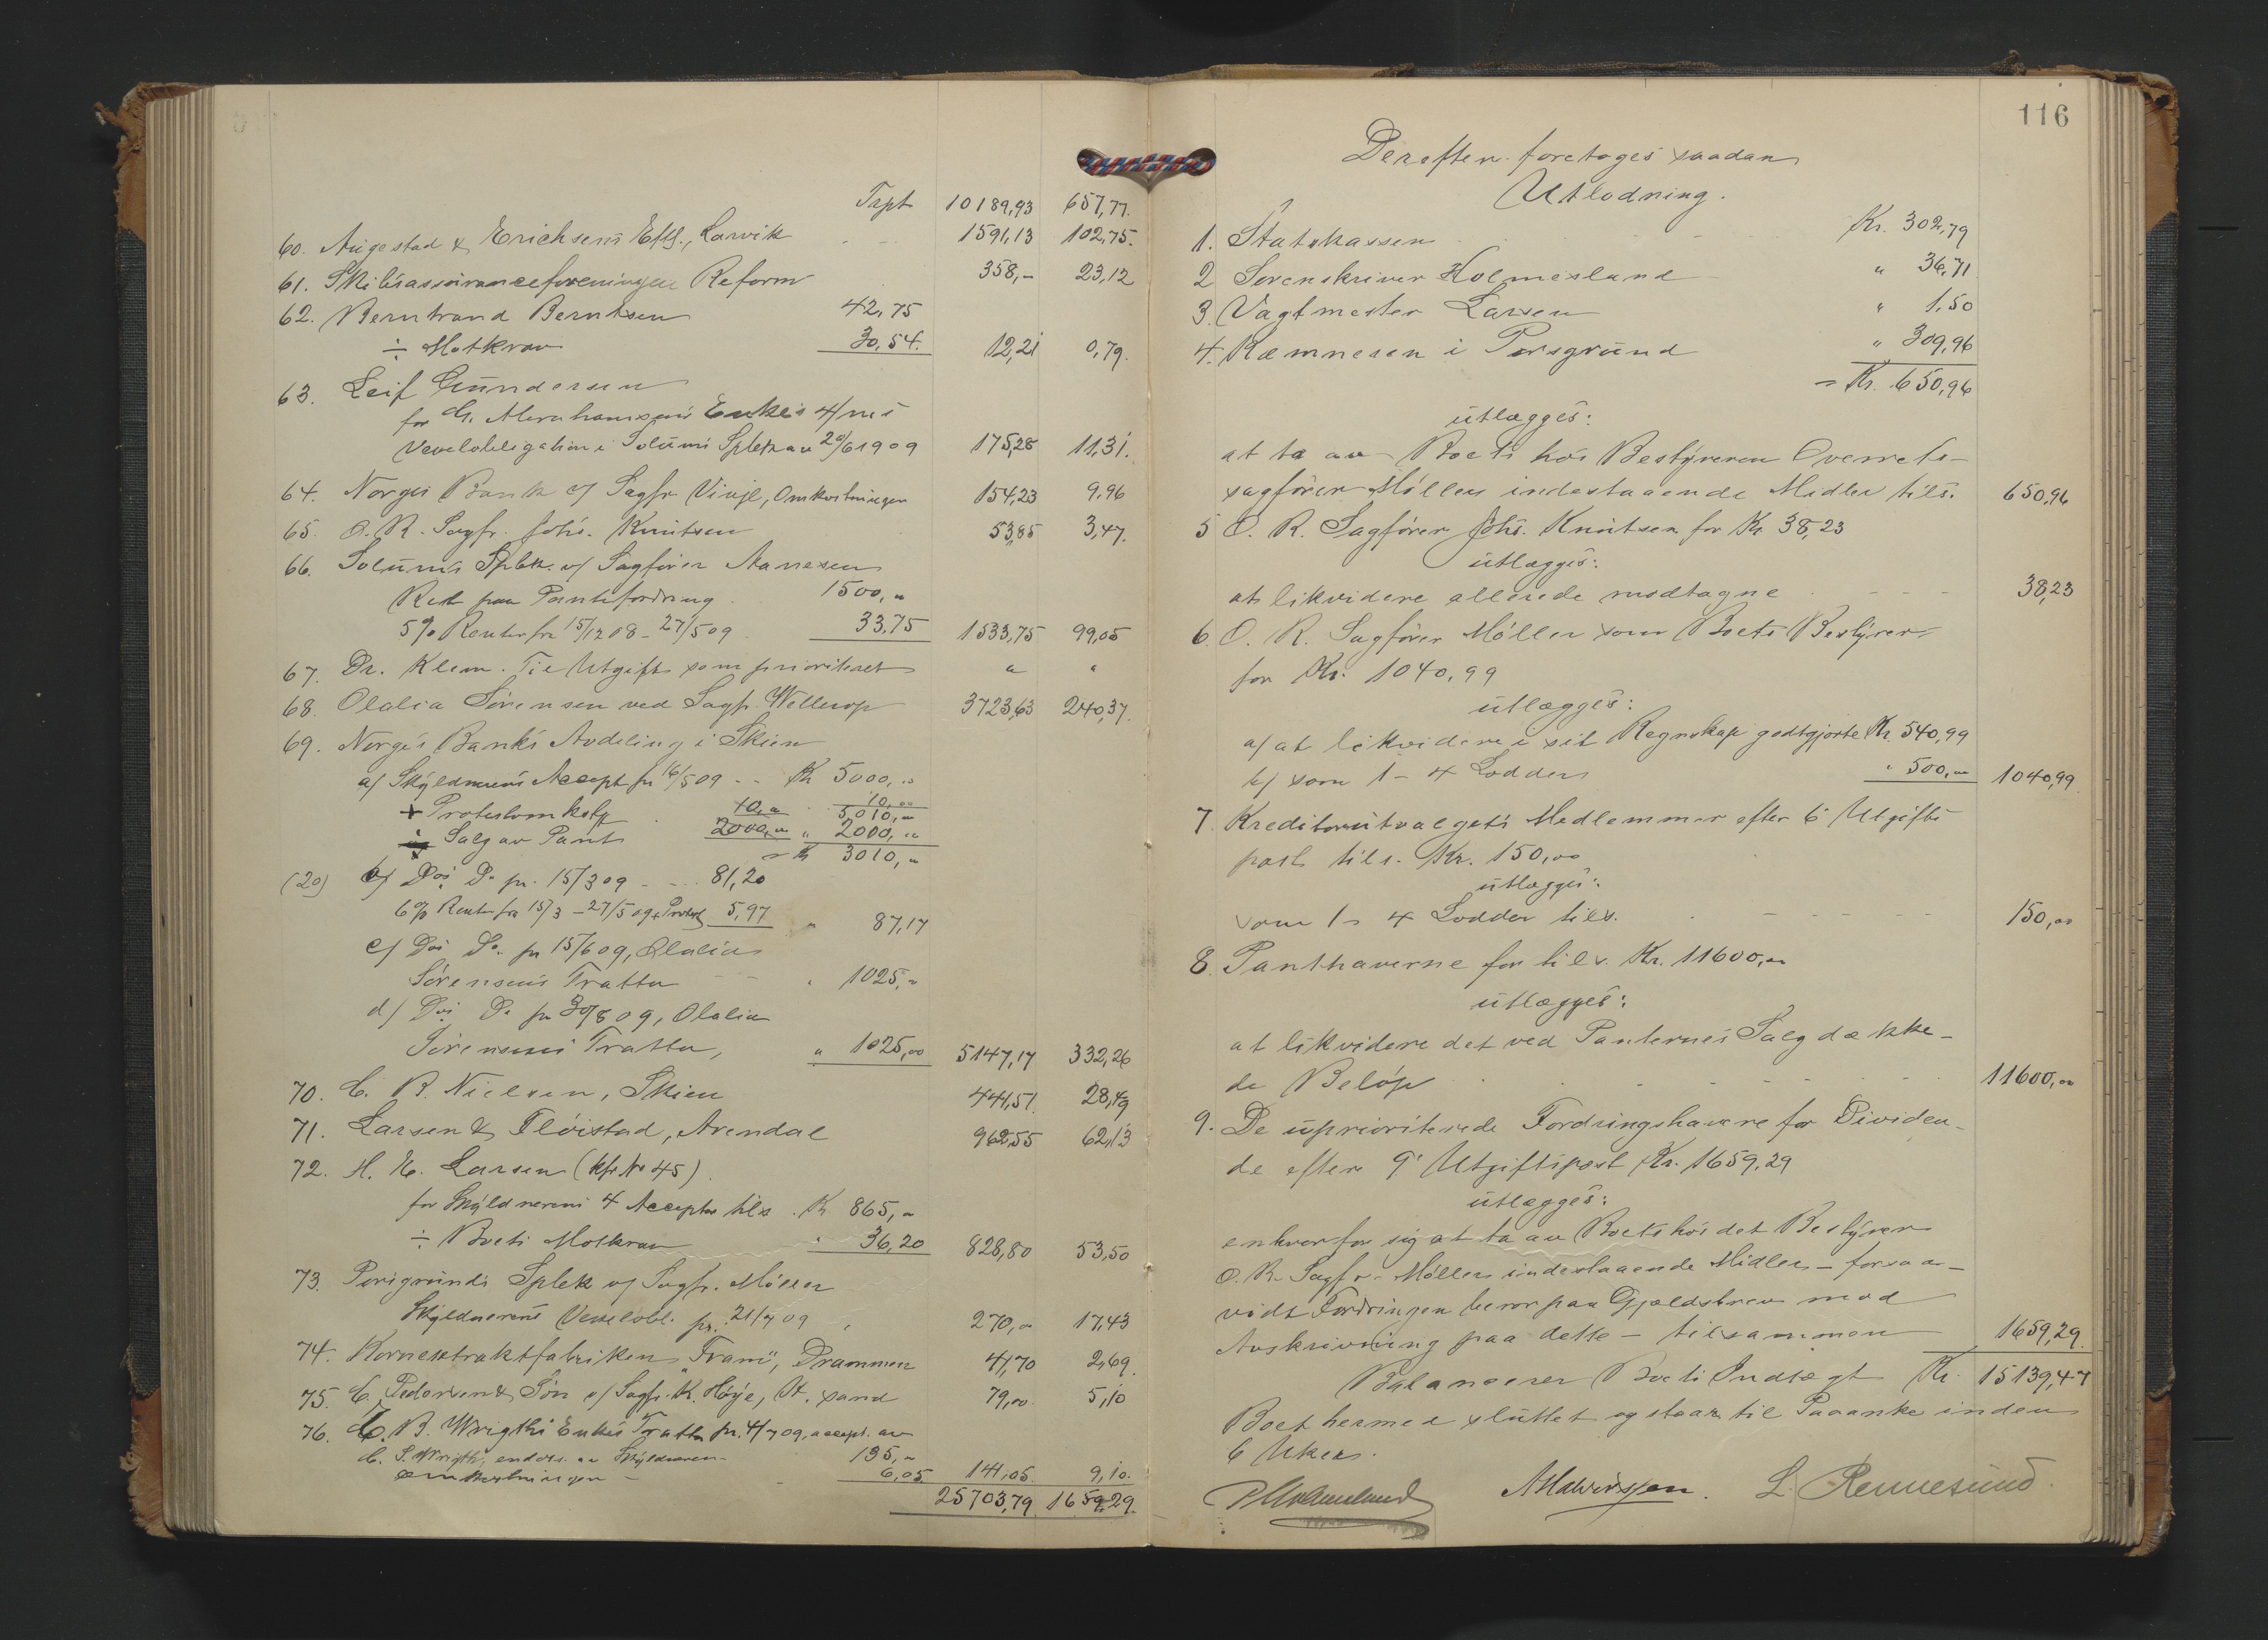 Trpt 10189,93 657,77.
60. Augestad & Erichsens Eftf., Larvik 1591,13 102,75.
61. Skibsassuranceforeningen Reform 358,- 23,12
62. Berntrand Berntsen 42,75
÷ Motkrav 30,54. 12,21 0,79.
63. Leif Gundersen
for G. Abrahamsens Enkes 4/
Vexelobligation i Solums Spbk av 20/6 1909 175,28 11,31.
64. Norges Bank v/ Sagfr. Vinje, Omkostninger 154,23 9,96
65. O. R. Sagfr. Johs. Knutsen 53,85 3,47.
66. Solums Spbk. v/ Sagfører Aanesen
Rest paa Pantefordring 1500,"
5% Renter fra 15/12 08 - 27/5 09 33,75 1533,75 99,05
67. Dr. Klem. Til Utgift som prioritert " "
68. Olalia Sørensen ved Sagfr. Wellerop 3723,63 240,37.
69. Norges Banks Avdeling i Skien
a/ Skyldnerens Accept pr 16/5 09 - - Kr 5000,"
+ Protestomkostg 10," 10,00
5,010,"
÷ Salg av Pant 2000," " 2000,"
= Kr 3010,"
(20) b/ Dos Do pr. 15/3 09 - ... 81,20
6% Renter fra 15/3 - 27/5 09 + Protest 5,97 " 87,17
c/ Dos Do. pr 15/6 09, Olalia
Sørensens Tratta - - " 1025,"
d/ Dos Do pr 30/8 09, Olalia
Sørensens Tratta, " 1025,00 5147,17 332,26
70. C. R. Nielsen, Skien 441,51 28,49
71. Larsen & Fløistad, Arendal 962,55 62,13
72. H. E. Larsen (kfr. No 45).
for Skyldnerens 4 Accepter tils. Kr 865,"
÷ Boets Motkrav " 36,20 828,80 53,50
73. Porsgrunds Spbk v/ Sagfr. Møller
Skyldnerens Vexelobl. pr. 21/7 09 , 270," 17,43
74. Kornextraktfabriken "Fram", Drammen 41,70 2,69.
75. C. Pedersen & Søn v/ Sagfr. K. Høye, Kr. sand 79,00. 5,10
76. C. B. Wrigths Enkes Tratta pr. 4/7 09, accept. av
C. S. Wrigth, endos. av Skyldneren - 135,"
omkostninger - 6,05 141,05. 9,10.
25703,79 1659,29.
116
Derefter foretages saadan
Utlodning.
1. Statskassen Kr. 302,79
2 Sorenskriver Holmesland " 36,71
3 Vagtmester Larsen " 1,50
4. Kæmneren i Porsgrund " 309,96
= Kr. 650,96
utlægges:
at ta av Boets hos Bestyreren Overrets-
sagfører Møllers indestaaende Midler tils. 650,96
5 O. R. Sagfører Johs. Knutsen for Kr 38,23
utlægges:
at likvidere allerede modtagne - - - 38,23
6. O. R. Sagfører Møller som Boets Bestyrer
for Kr. 1040,99
utlægges:
a/ at likvidere i sit Regnskap godtgjorte Kr. 540,99
b/ som 1 - 4 Lodder " 500," 1040,99
7. Kreditorutvalgets Medlemmer efter 6' Utgifts
post tils. Kr. 150,00
utlægges:
som 1 - 4 Lodder tils. - - - - - 150,00
8. Panthaverne for tils. Kr. 11600,"
utlægges:
at likvidere det ved Panternes Salg dække-
de Beløp - - - - 11600,"
9. De uprioriterede Fordringshavere for Dividen-
de efter 9' Utgiftspost Kr. 1659,29
utlægges:
enhver for sig at ta av Boets hos det Bestyrer
O. R. Sagfr. Møllers indestaaende Midler - forsaa-
vidt Fordringen beror paa Gjældsbrev mod
Avskrivning paa dette - tilsammen 1659,29.
Balancerer Boets Indtægt Kr. 15139,47
Boet hermed sluttet og staar til Paaanke inden
6 Uker.
P Holmesland A Halvorssen. L. Rennesund.